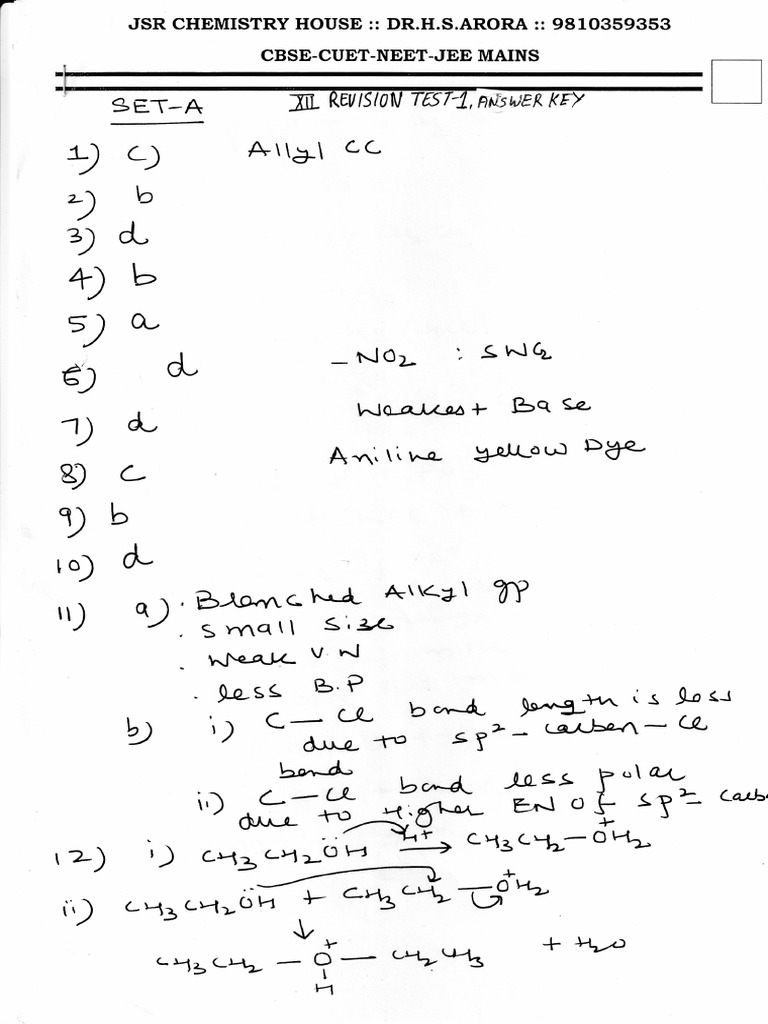 JSR CHEMISTRY HOUSE :: DR.H.S.ARORA :: 9810359353
CBSE-CUET-NEET-JEE MAINS
SET-A XII REVISION TEST-1, ANSWER KEY
1) c) Allyl CC
2) b
3) d
4) b
5) a
6) d -NO2 : SWG
7) d Weakest Base
8) c Aniline yellow Dye
9) b
10) d
11) a) . Branched Alkyl gp
. small size
. weak V.W
. less B.P
b) i) C-Cl bond length is less
due to sp2-carbon-Cl
bond
ii) C-Cl bond less polar
due to Higher EN of sp2-carbon
12) i) CH3CH2ÖH H+ → CH3CH2-O+H2
ii) CH3CH2ÖH + CH3CH2-O+H2
↓
CH3CH2-O+-CH2CH3 + H2O
H